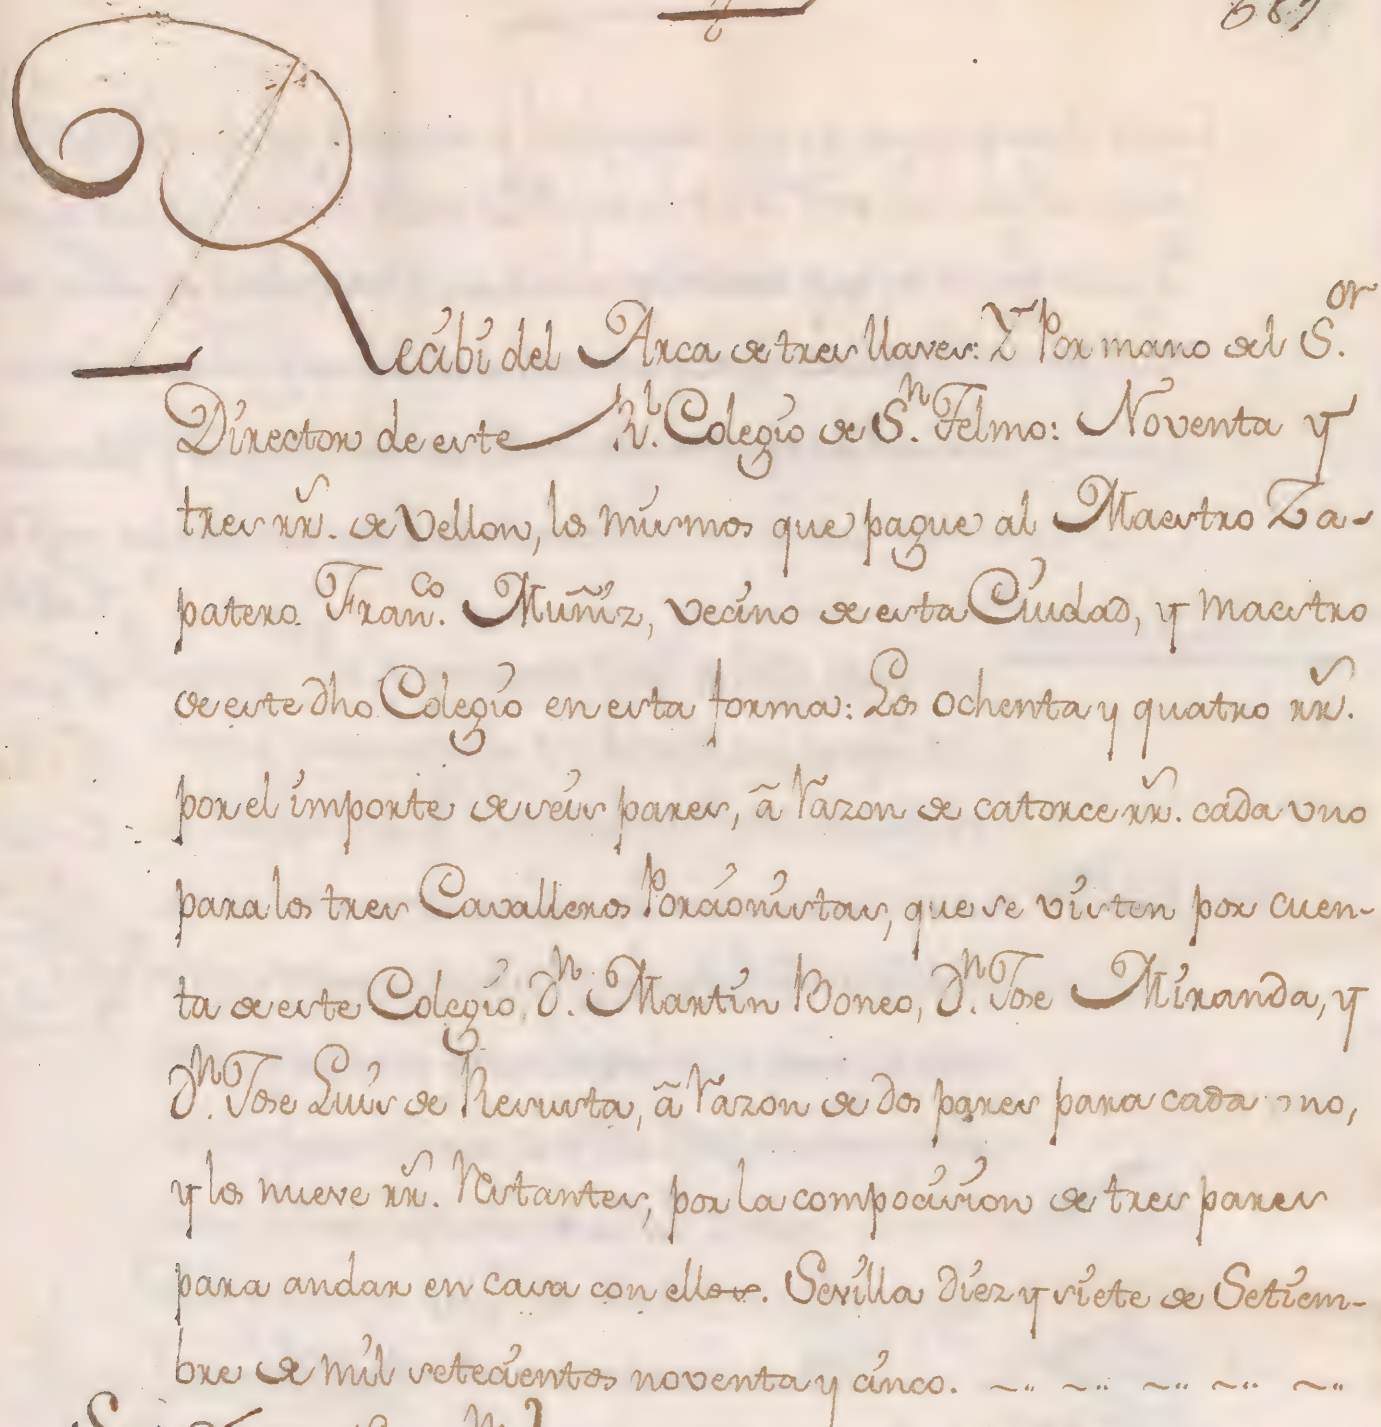 Recibi del Arca de tres llaves: Y Por mano del S.or
Director de este Rl. Colegio de Sn. Telmo: Noventa y
tres rr. de Vellon, los mismos que pague al Maestro Za-
patero Franco. Muñiz, vecino de esta Ciudad, y maestro
de este dho Colegio en esta forma: Los ochenta y quatro rr.
por el importe de seis pares, â razon de catorce rr. cada uno
para los tres Cavalleros Porcionistas, que se visten por cuen-
ta de este Colegio, Dn. Martin Boneo, Dn. Jose Miranda, y
Dn. Jose Luis de Resusta, â razon de dos pares para cada uno,
y los nueve rr. restantes, por la composision de tres pares
para andar en casa con ellos. Sevilla diez y siete de Setiem-
bre de mil setecientos noventa y cinco.